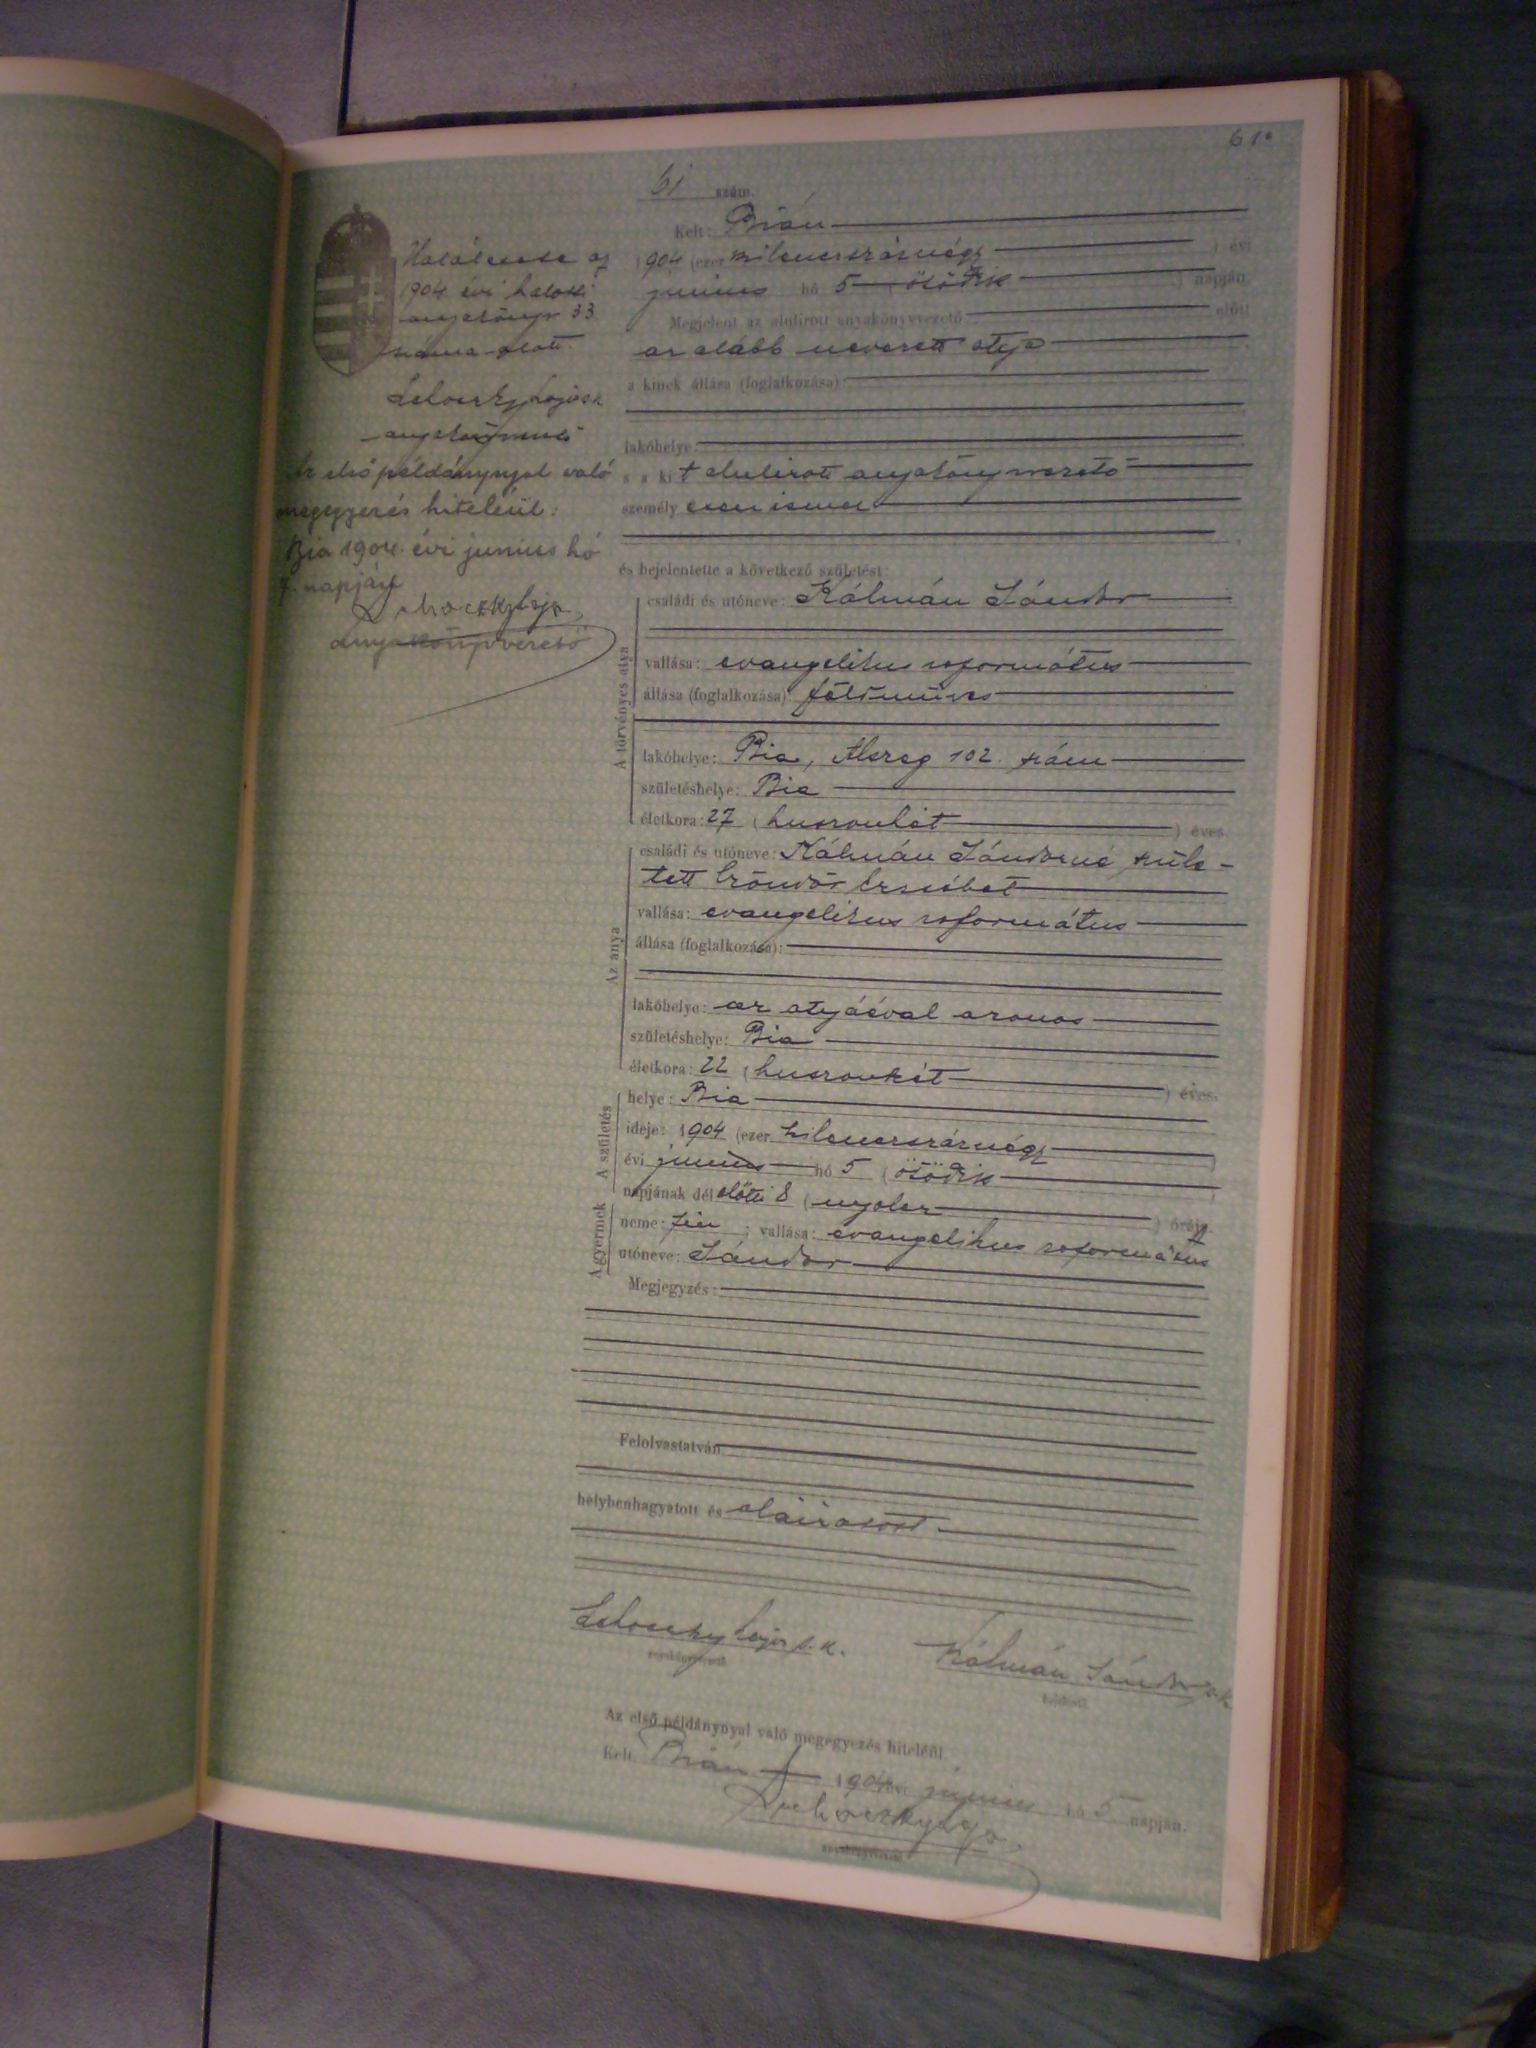 61.
61 szám.
Kelt: Bián
1904 (ezer kilencszáznégy) évi
junius hó 5 (ötödik) napján.
Megjelent az alulirott anyakönyvvezető előtt
az alább nevezett atya
a kinek állása (foglalkozása):
lakóhelye
s a kit alulirott anyakönyvvezető
személy esen ismer
és bejelentette a következő születést:
A törvényes atya
családi és utóneve: Kálmán Sándor
vallása: evangelikus református
állása (foglalkozása): földműves
lakóhelye: Bia, Alszeg 102. szám
születéshelye: Bia
életkora: 27 (huszonhét) éves.
Az anya
családi és utóneve: Kálmán Sándorné szüle-
tett Erzsébet
vallása: evangelikus református
állása (foglalkozása):
lakóhelye: az atyáéval azonos
születéshelye: Bia
életkora: 22 (huszonkét) éves.
A születés
helye: Bia
ideje: 1904 (ezer kilencszáznégy)
évi junius hó 5 (ötödik)
napjának dél előtti 8 (nyolcz) órája.
A gyermek
neme: fiu; vallása: evangelikus református
utóneve: Sándor
Megjegyzés:
Felolvastatván
helybenhagyatott és aláiratott
Lajos s.k. Kálmán Sándor s.k.
anyakönyvvezető bejelentő
Az első példánynyal való megegyezés hiteléül.
Kelt Bián 1904 évi junius hó 5 napján.
anyakönyvvezető
Halálesete az
1904 évi halotti
anyakönyv 33
száma alatt.
Lajos s.k.
anyakönyvvezető
Az első példánynyal való
megegyezés hiteléül:
Bia 1904. évi junius hó
7. napján
anyakönyvvezető